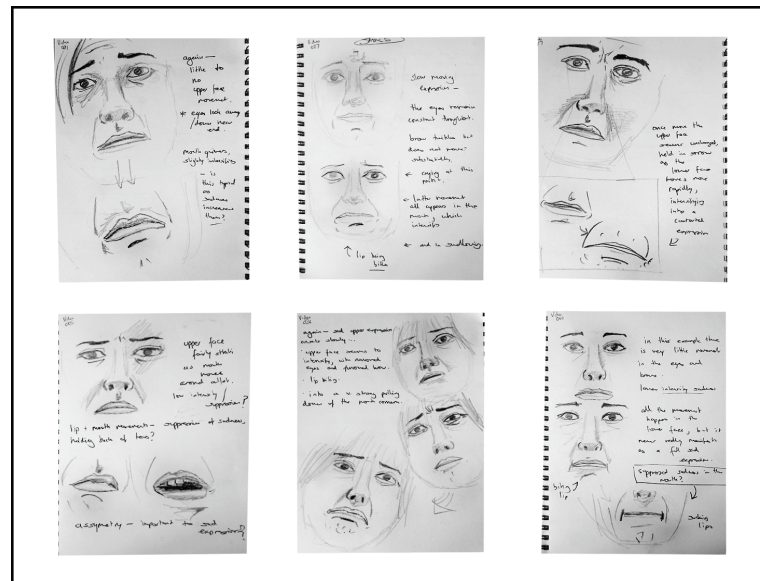 Video
again —
little to
no
upper face
movement.
* eyes look away
/down near
end...
mouth quivers,
slightly intensifies
- is
this typical
as
sadness
increases
then?
Video
027
slow moving
expression —
the eyes remain
constant throughout.
brow twitches but
does not move
substantially.
← crying at this
point.
← latter movement
all appears in the
mouth, which
intensifies
← end is swallowing.
↑ lip being
bitten
once more the
upper face
remains unchanged,
held in sorrow
as the
lower face
moves more
rapidly,
intensifying
into a
contorted
expression
Video
upper face
fairly static
as mouth
moves
around a lot.
low intensity /
suppression?
lip + mouth movements — suppression of sadness,
holding back of tears?
assymetry — important to sad
expressions?
Video
again — sad upper expression
moves slowly...
upper face seems to
intensify, with narrowed
eyes and furrowed brow.
. lip biting.
. into a v. strong pulling
down of the mouth corners.
Video
in this example there
is very little movement
in the eyes and
brows.
lower intensity sadness
all the movement
happens in the
lower face, but it
never really manifests
as a full sad
expression.
suppressed sadness in the
mouth?
biting
lip
sucking
lips